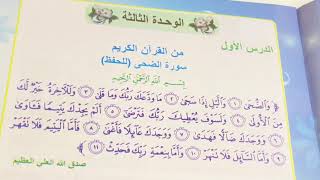 الوحدة الثالثة
الدرس الأول
من القرآن الكريم
سورة الضحى (للحفظ)
بِسْمِ اللَّهِ الرَّحْمَٰنِ الرَّحِيمِ
وَالضُّحَىٰ ١ وَاللَّيْلِ إِذَا سَجَىٰ ٢ مَا وَدَّعَكَ رَبُّكَ وَمَا قَلَىٰ ٣ وَلَلْآخِرَةُ خَيْرٌ لَّكَ
مِنَ الْأُولَىٰ ٤ وَلَسَوْفَ يُعْطِيكَ رَبُّكَ فَتَرْضَىٰ ٥ أَلَمْ يَجِدْكَ يَتِيمًا فَآوَىٰ
٦ وَوَجَدَكَ ضَالًّا فَهَدَىٰ ٧ وَوَجَدَكَ عَائِلًا فَأَغْنَىٰ ٨ فَأَمَّا الْيَتِيمَ فَلَا تَقْهَرْ
٩ وَأَمَّا السَّائِلَ فَلَا تَنْهَرْ ١٠ وَأَمَّا بِنِعْمَةِ رَبِّكَ فَحَدِّثْ ١١
صدق الله العلي العظيم